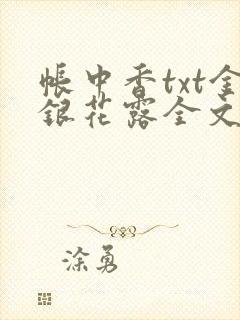 帐中香txt金
银花露全文
涂勇